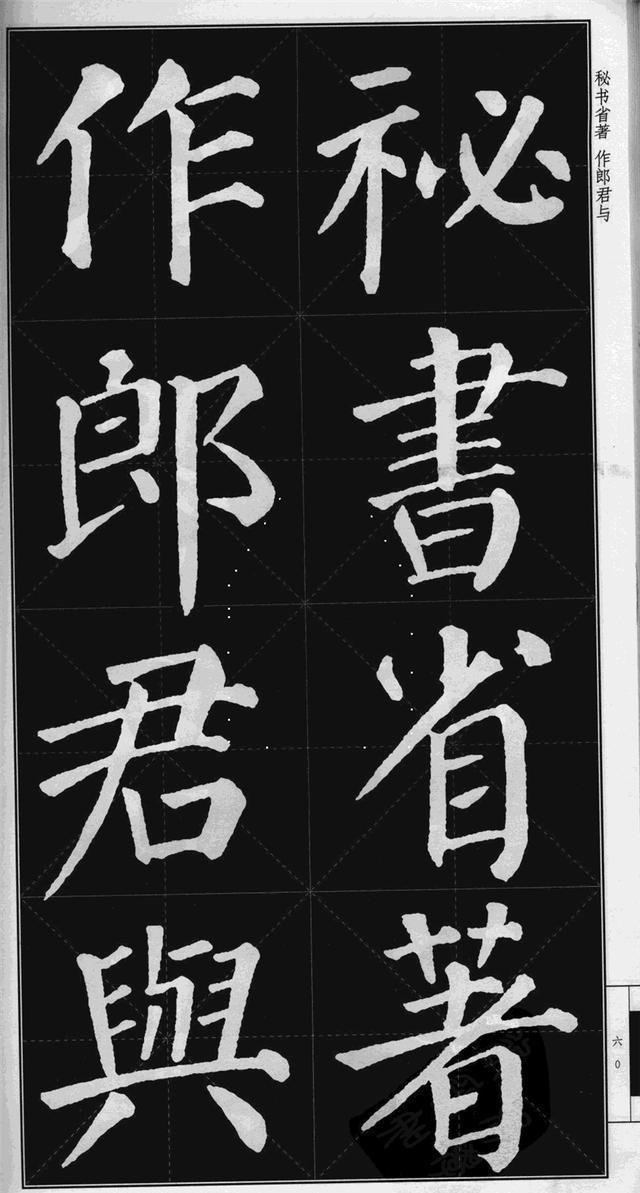 秘书省著 作郎君与
祕書省著
作郎君與
六〇